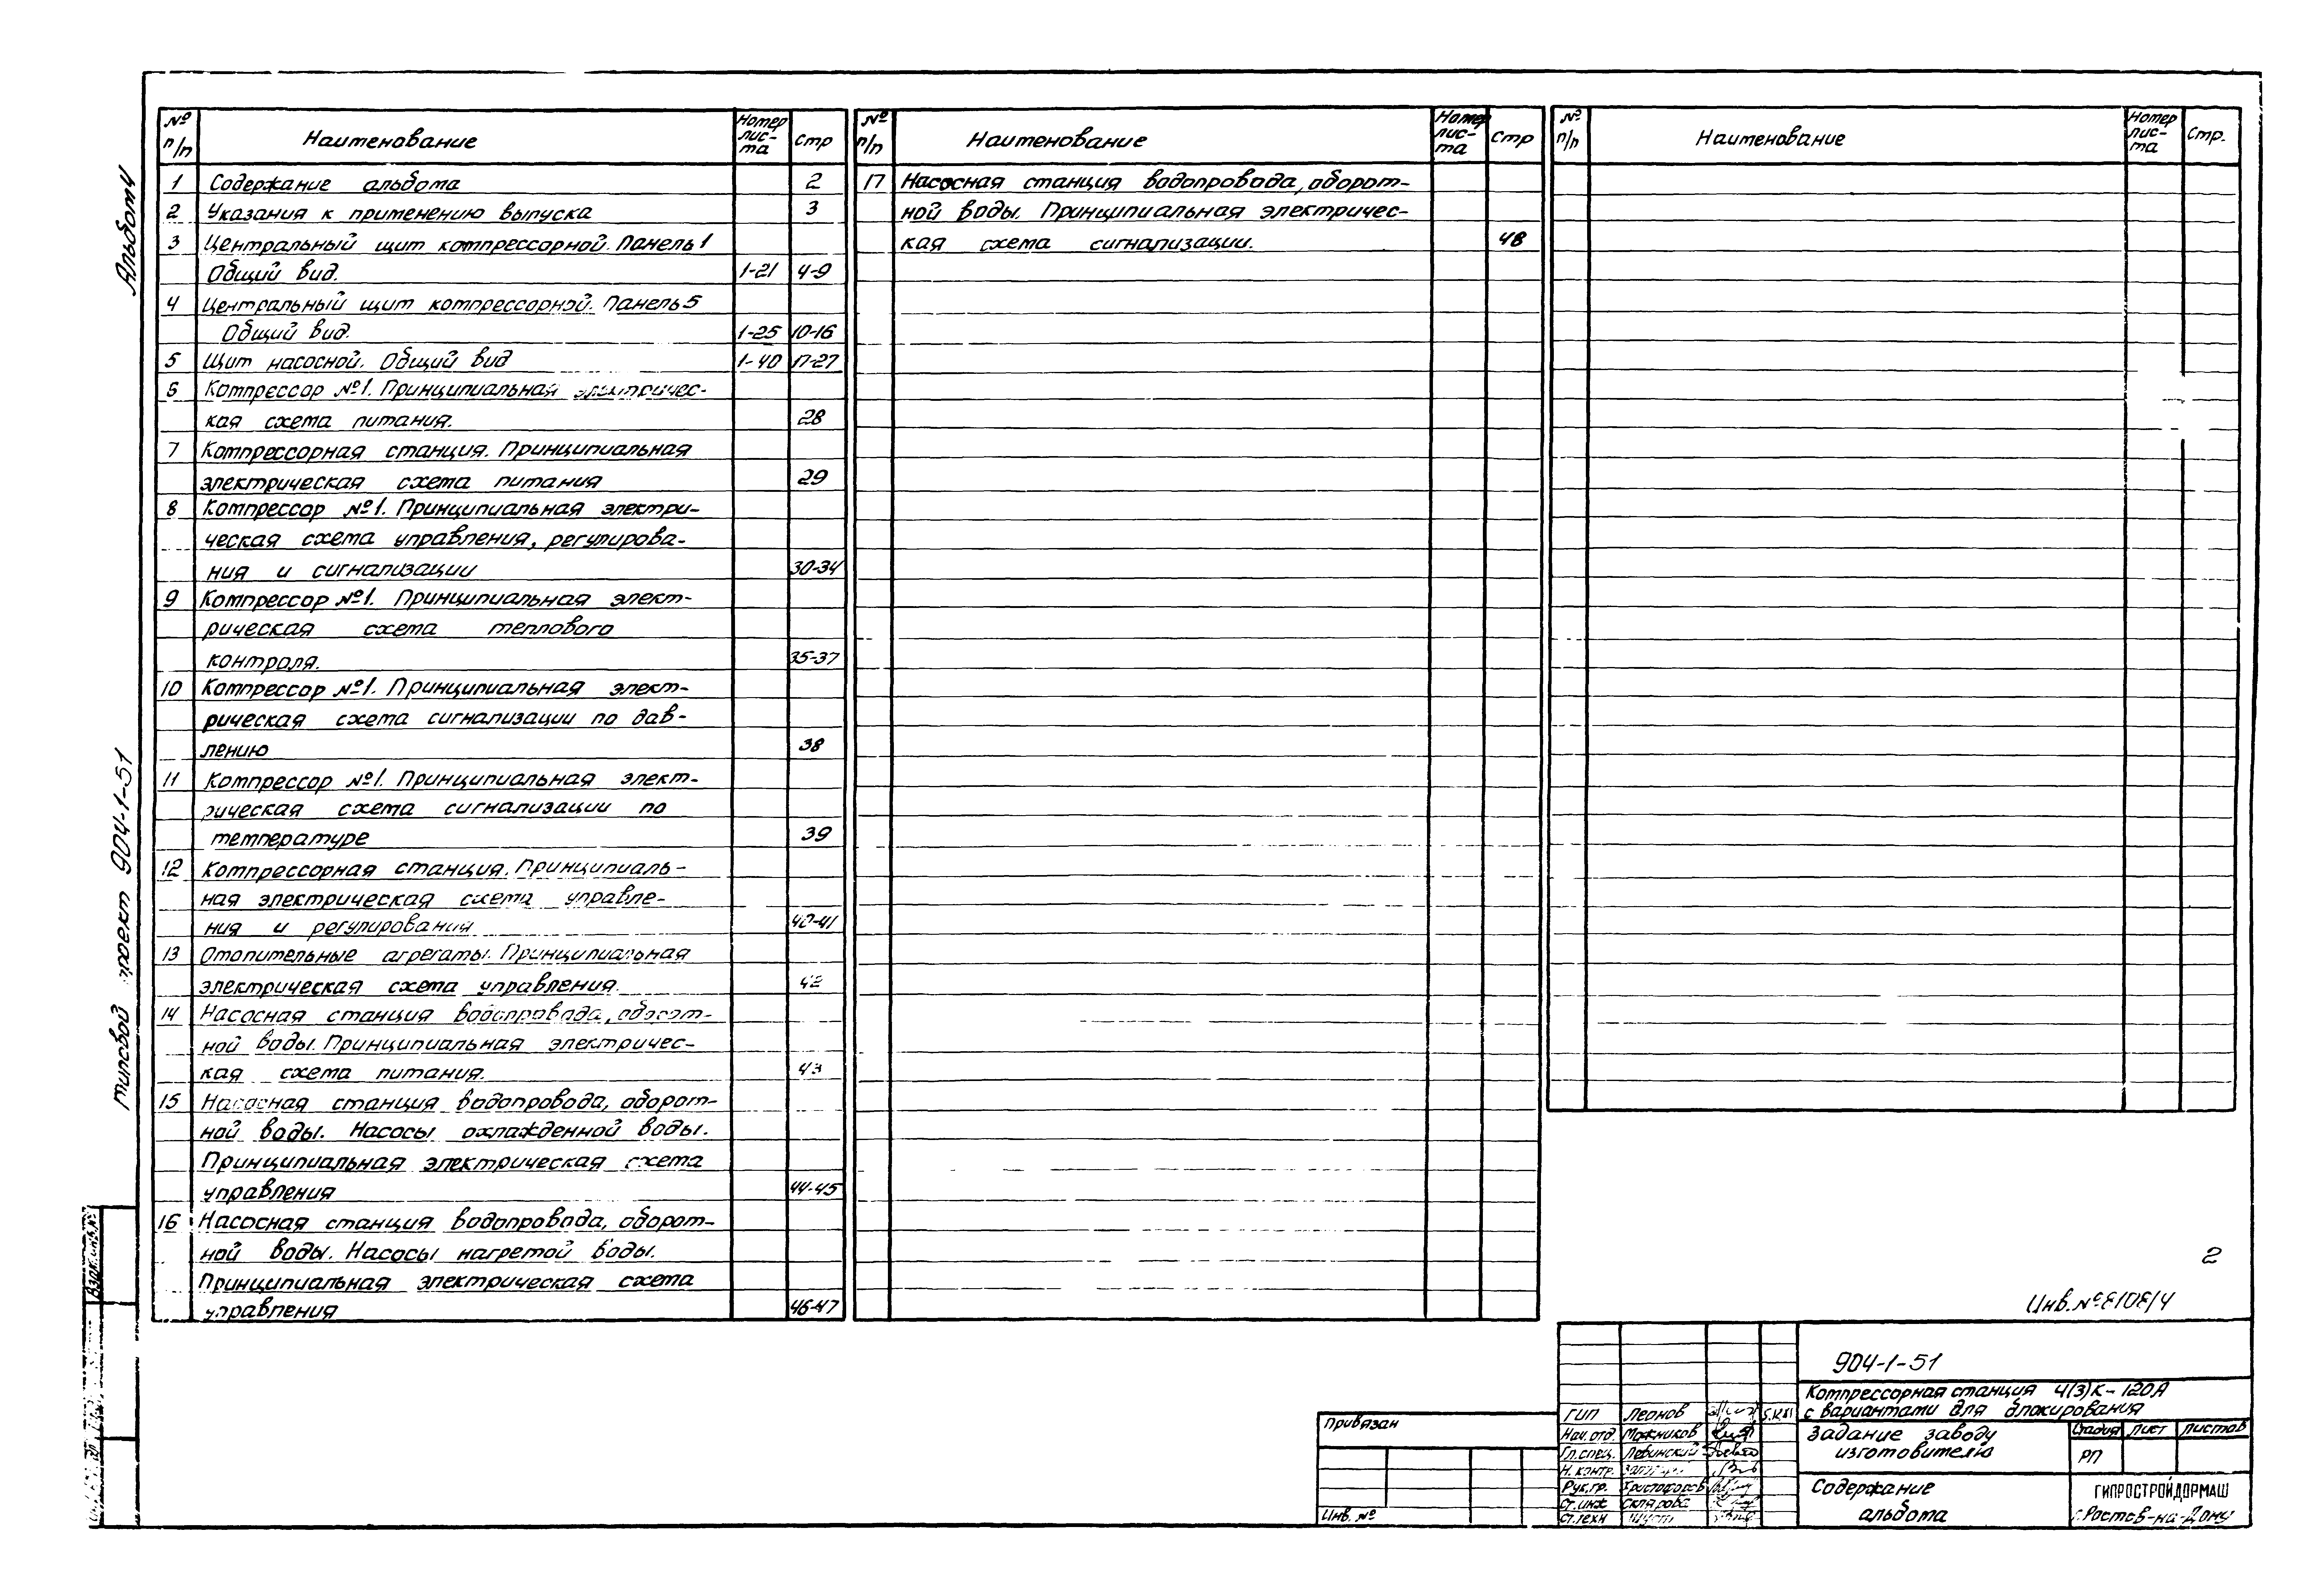 Альбом 4
типовой проект 904-1-51
№ п/п Наименование Номер лис-та Стр
1 Содержание альбома 2
2 Указания к применению выпуска 3
3 Центральный щит компрессорной. Панель 1
Общий вид. 1-21 4-9
4 Центральный щит компрессорной. Панель 5
Общий вид. 1-25 10-16
5 Щит насосной. Общий вид 1-40 17-27
6 Компрессор №1. Принципиальная электричес-
кая схема питания. 28
7 Компрессорная станция. Принципиальная
электрическая схема питания 29
8 Компрессор №1. Принципиальная электри-
ческая схема управления, регулирова-
ния и сигнализации 30-34
9 Компрессор №1. Принципиальная элект-
рическая схема теплового
контроля. 35-37
10 Компрессор №1. Принципиальная элект-
рическая схема сигнализации по дав-
лению 38
11 Компрессор №1. Принципиальная элект-
рическая схема сигнализации по
температуре 39
12 Компрессорная станция. Принципиаль-
ная электрическая схема управле-
ния и регулирования 40-41
13 Отопительные агрегаты. Принципиальная
электрическая схема управления. 42
14 Насосная станция водопровода, оборот-
ной воды. Принципиальная электричес-
кая схема питания. 43
15 Насосная станция водопровода, оборот-
ной воды. Насосы охлажденной воды.
Принципиальная электрическая схема
управления 44-45
16 Насосная станция водопровода, оборот-
ной воды. Насосы нагретой воды.
Принципиальная электрическая схема
управления 46-47
№ п/п Наименование Номер лис-та Стр
17 Насосная станция водопровода, оборот-
ной воды. Принципиальная электричес-
кая схема сигнализации. 48
№ п/п Наименование Номер лис-та Стр.
2
Инв. №
904-1-51
Компрессорная станция 4(3)К-120А
с вариантами для блокирования
Задание заводу
изготовителю
Стадия Лист Листов
РП
Содержание
альбома
ГИПРОСТРОЙДОРМАШ
г. Ростов-на-Дону
ГИП Леонов
Нач. отд. Можников
Гл. спец. Левинский
Н. контр.
Рук. гр. Христофоров
Ст. инж Склярова
Ст. техн
Привязан
Инв. №
Взам. инв. №